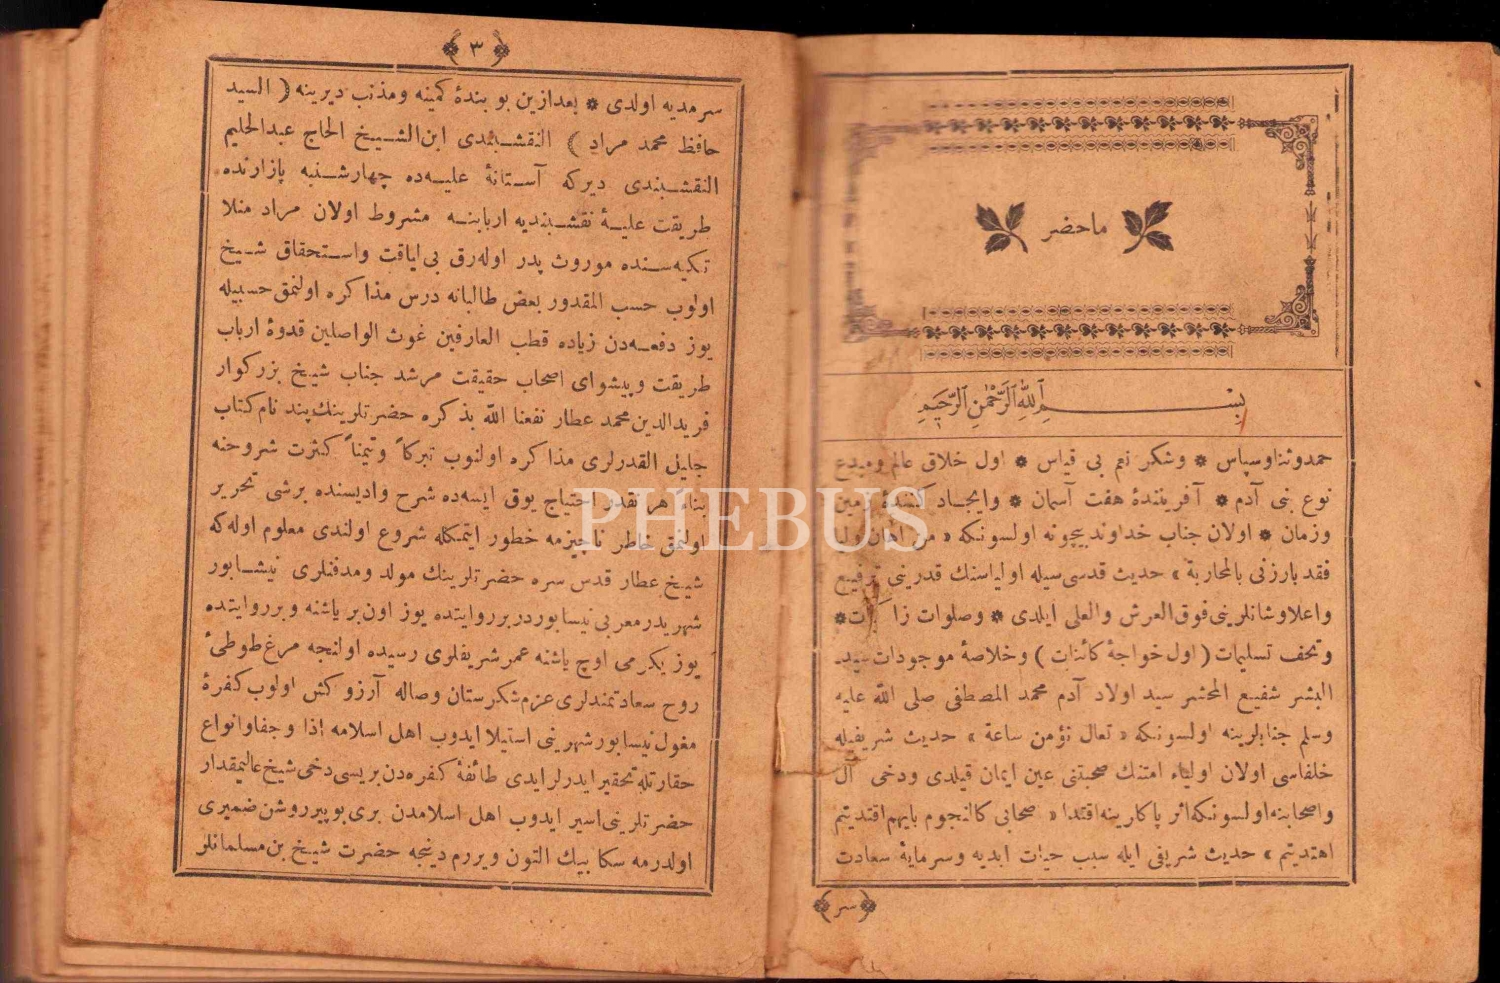 ماحضر
بسم الله الرحمن الرحيم
حمدوثناوسپاس * وشكر نعم بى قياس * اول خلاق عالم ومبدع
نوع بنى آدم * آفريننده هفت آسمان * وايجاد كننده زمين
وزمان * اولان جناب خداوند بيچونه اولسونكه « من أهان لى وليا
فقد بارزنى بالمحاربة » حديث قدسى سيله اولياسنك قدرينى ترفيع
واعلاوشانلرينى فوق العرش والعلى ايلدى * وصلوات زا كيات *
وتحف تسليمات ( اول خواجهٔ كائنات ) وخلاصهٔ موجودات سيد
البشر شفيع المحشر سيد اولاد آدم محمد المصطفى صلى الله عليه
وسلم جنابلرينه اولسونكه « تعال نؤمن ساعة » حديث شريفيله
خلفاسى اولان اولياء امتنك صحبتنى عين ايمان قيلدى ودخى آل
واصحابنه اولسونكه اثر پاكارينه اقتدا « صحابى كالنجوم بايهم اقتديتم
اهتديتم » حديث شريفى ايله سبب حيات ابديه وسرمايهٔ سعادت
سر
٣
سرمديه اولدى * بعدازين بو بندهٔ كمينه ومذنب ديرينه ( السيد
حافظ محمد مراد ) النقشبندى ابن الشيخ الحاج عبدالحليم
النقشبندى ديركه آستانهٔ عليه‌ده چهارشنبه پازارنده
طريقت عليهٔ نقشبنديه اربابنه مشروط اولان مراد منلا
تكيه‌سنده موروث پدر اوله‌رق بى لياقت واستحقاق شيخ
اولوب حسب المقدور بعض طالبانه درس مذا كره اولنمق حسبيله
يوز دفعه‌دن زياده قطب العارفين غوث الواصلين قدوهٔ ارباب
طريقت وپيشواى اصحاب حقيقت مرشد جناب شيخ بزركوار
فريدالدين محمد عطار نفعنا الله بذكره حضرتلرينك پند نام كتاب
جليل القدرلرى مذا كره اولنوب تبركاً وتيمناً كثرت شروحنه
بناءً هر نقدر احتياج يوق ايسه‌ده شرح واديسنده برشى تحرير
اولنمق خاطر ناچيزمه خطور ايتمكله شروع اولندى معلوم اوله‌كه
شيخ عطار قدس سره حضرتلرينك مولد ومدفنلرى نيشابور
شهريدر معربى نيسابوردر برروايتده يوز اون بر ياشنه وبرروايتده
يوز يكرمى اوچ ياشنه عمر شريفلرى رسيده اولنجه مرغ طوطئ
روح سعادتمندلرى عزم شكرستان وصاله آرزوكش اولوب كفرهٔ
مغول نيسابور شهرينى استيلا ايدوب اهل اسلامه اذا وجفاوانواع
حقارتله تحقير ايدرلر ايدى طائفهٔ كفره‌دن بريسى دخى شيخ عاليمقدار
حضرتلرينى اسير ايدوب اهل اسلامدن برى بو پير روشن ضميرى
اولدرمه سكا بيك التون ويررم دينجه حضرت شيخ بن مسلمانلر
PHEBUS